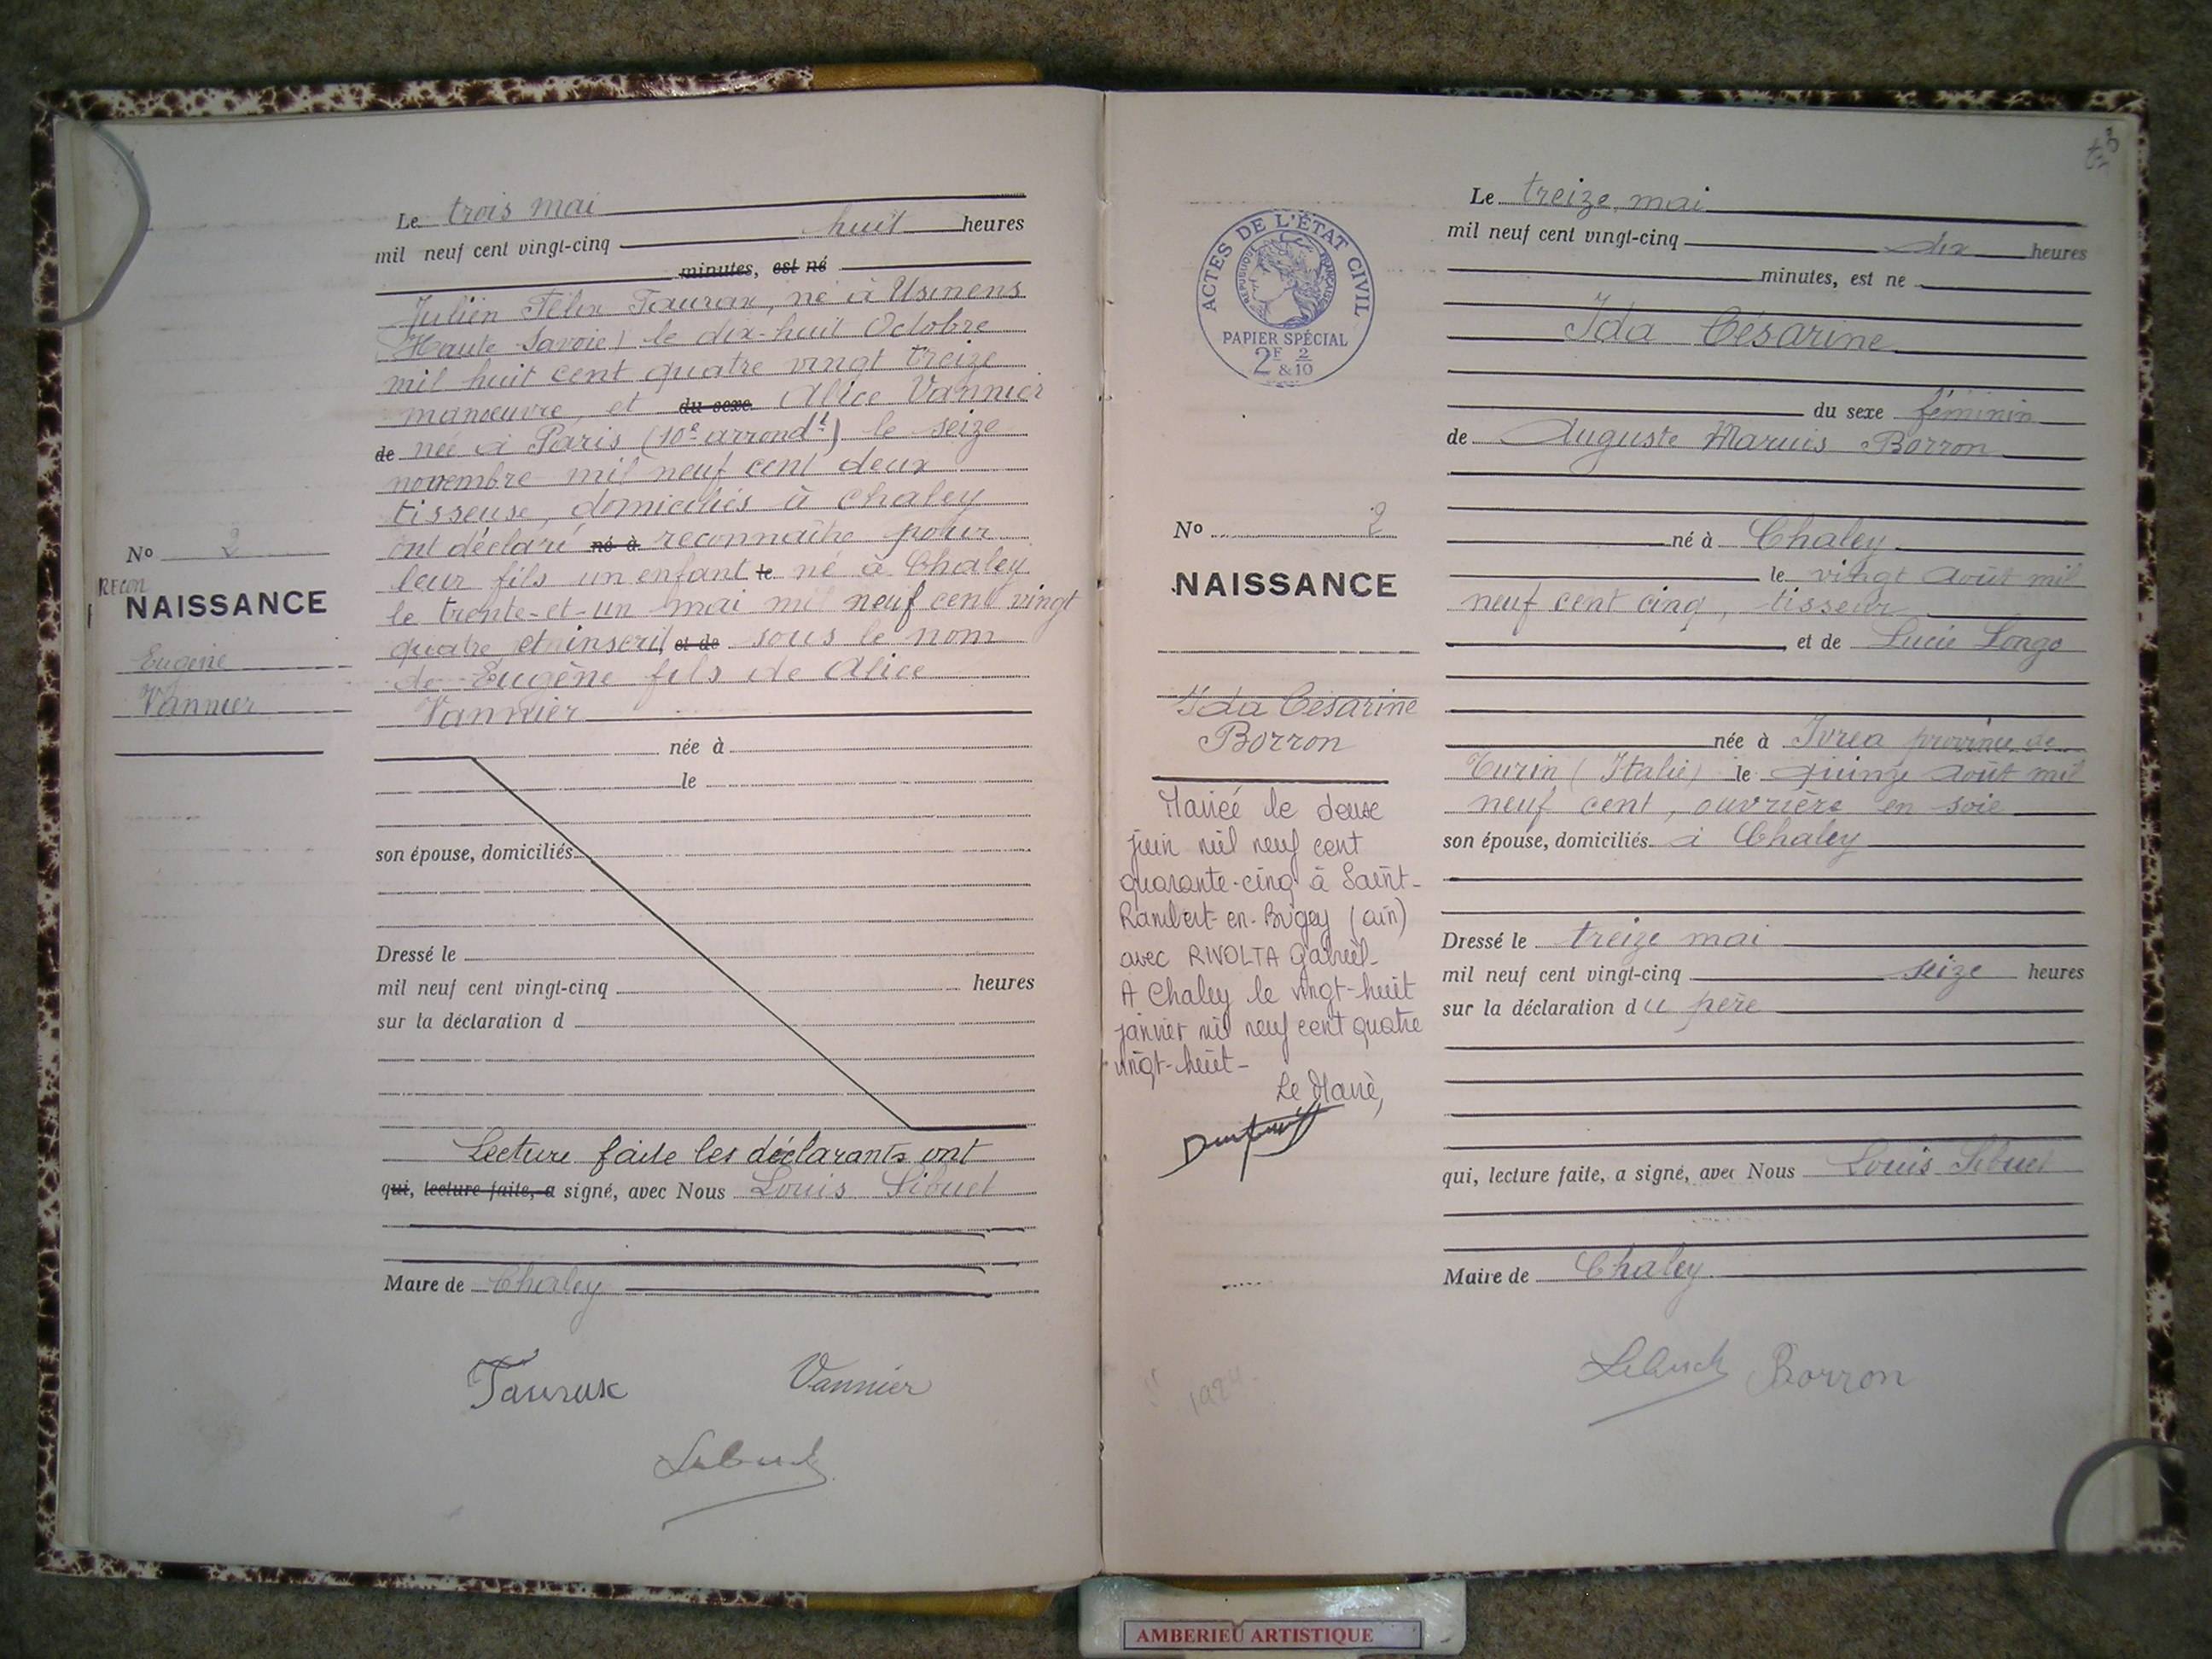 Le trois mai
mil neuf cent vingt-cinq huit heures
minutes, est né
Julien Félix Taurax, né à Usinens
(Haute Savoie) le dix-huit Octobre
mil huit cent quatre vingt treize
manœuvre, et du sexe Alice Vannier
de née à Paris (10e arrondt) le seize
novembre mil neuf cent deux
tisseuse, domiciliés à Chaley
ont déclaré né à reconnaître pour
leur fils un enfant le né à Chaley
le trente-et-un mai mil neuf cent vingt
quatre et inscrit et de sous le nom
de Eugène fils de Alice
Vannier
No 2
RECON
NAISSANCE
Eugène
Vannier
née à
le
son épouse, domiciliés
Dressé le
mil neuf cent vingt-cinq heures
sur la déclaration d
Lecture faite les déclarants ont
qui, lecture faite, a signé, avec Nous Louis Sibuet
Maire de Chaley
Vannier
ACTES DE L'ÉTAT CIVIL
RÉPUBLIQUE FRANÇAISE
PAPIER SPÉCIAL
2F & 2/10
No 2
NAISSANCE
Ida Césarine
Borron
Mariée le deux
juin mil neuf cent
quarante-cinq à Saint-
Rambert-en-Bugey (ain)
avec RIVOLTA Gabriel-
A Chaley le vingt-huit
janvier mil neuf cent quatre
vingt-huit-
Le Maire,
Le treize mai
mil neuf cent vingt-cinq dix heures
minutes, est ne
Ida Césarine
du sexe féminin
de Auguste Marius Borron
né à Chaley
le vingt Août mil
neuf cent cinq, tisseur
et de Lucie Longo
née à Ivrea province de
Turin (Italie) le quinze Août mil
neuf cent, ouvrière en soie
son épouse, domiciliés à Chaley
Dressé le treize mai
mil neuf cent vingt-cinq seize heures
sur la déclaration du père
qui, lecture faite, a signé, avec Nous Louis Sibuet
Maire de Chaley
Borron
AMBERIEU ARTISTIQUE